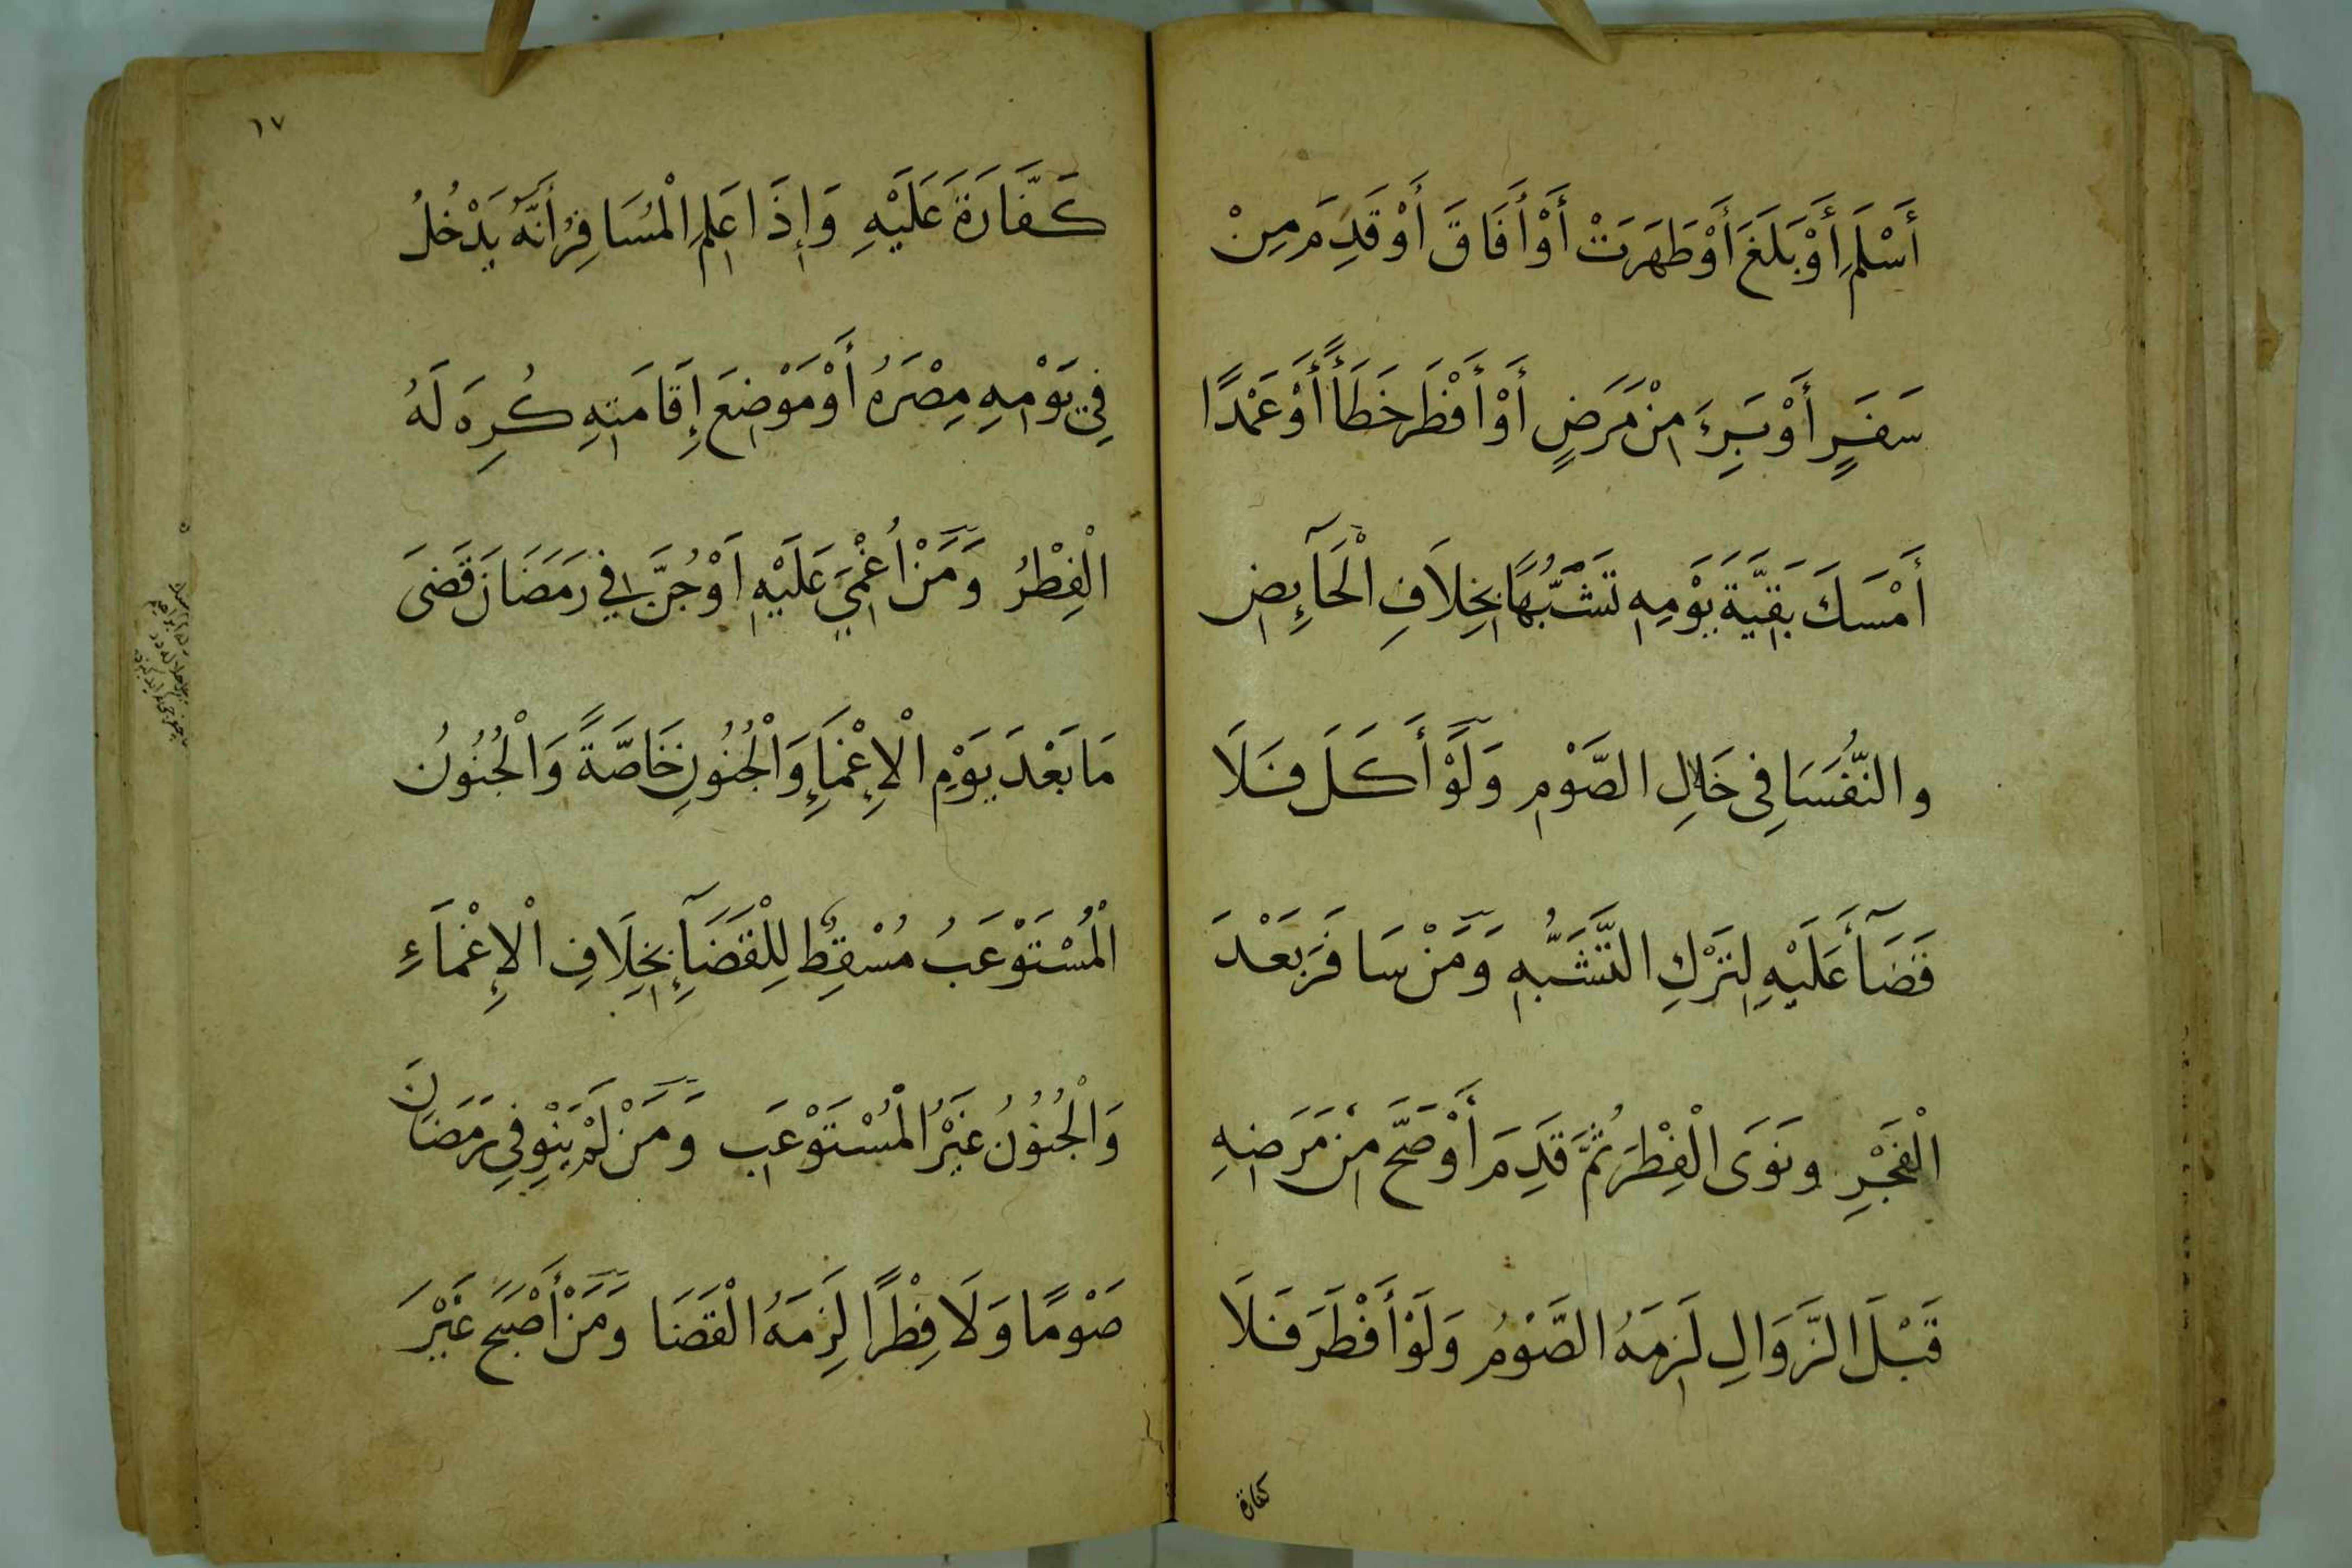 أَسْلَمَ أَوْ بَلَغَ أَوْ طَهَرَتْ أَوْ أَفَاقَ أَوْ قَدِمَ مِنْ
سَفَرٍ أَوْ بَرِءَ مِنْ مَرَضٍ أَوْ أَفْطَرَ خَطَأً أَوْ عَمْدًا
أَمْسَكَ بَقِيَّةَ يَوْمِهِ تَشَبُّهًا بِخِلَافِ الْحَآئِضِ
والنُّفَسَا فِي حَالِ الصَّوْمِ وَلَوْ أَكَلَ فَلَا
قَضَآ عَلَيْهِ لِتَرْكِ التَّشَبُّهِ وَمَنْ سَافَرَ بَعْدَ
الْفَجْرِ وَنَوَى الْفِطْرَ ثُمَّ قَدِمَ أَوْ صَحَّ مِنْ مَرَضِهِ
قَبْلَ الزَّوَالِ لَزِمَهُ الصَّوْمُ وَلَوْ أَفْطَرَ فَلَا
كفارة
١٧
كَفَّارَةَ عَلَيْهِ وَإِذَا عَلِمَ الْمُسَافِرُ أَنَّهُ يَدْخُلُ
فِي يَوْمِهِ مِصْرَهُ أَوْ مَوْضِعَ إِقَامَتِهِ كُرِهَ لَهُ
الْفِطْرُ وَمَنْ أُغْمِيَ عَلَيْهِ أَوْ جُنَّ فِي رَمَضَانَ قَضَى
مَا بَعْدَ يَوْمِ الْإِغْمَاءِ وَالْجُنُونِ خَاصَّةً وَالْجُنُونُ
الْمُسْتَوْعَبُ مُسْقِطٌ لِلْقَضَآءِ بِخِلَافِ الْإِغْمَاءِ
وَالْجُنُوْنُ غَيْرُ الْمُسْتَوْعَبِ وَمَنْ لَمْ يَنْوِ فِي رَمَضَانَ
صَوْمًا وَلَا فِطْرًا لَزِمَهُ الْقَضَا وَمَنْ أَصْبَحَ غَيْرَ